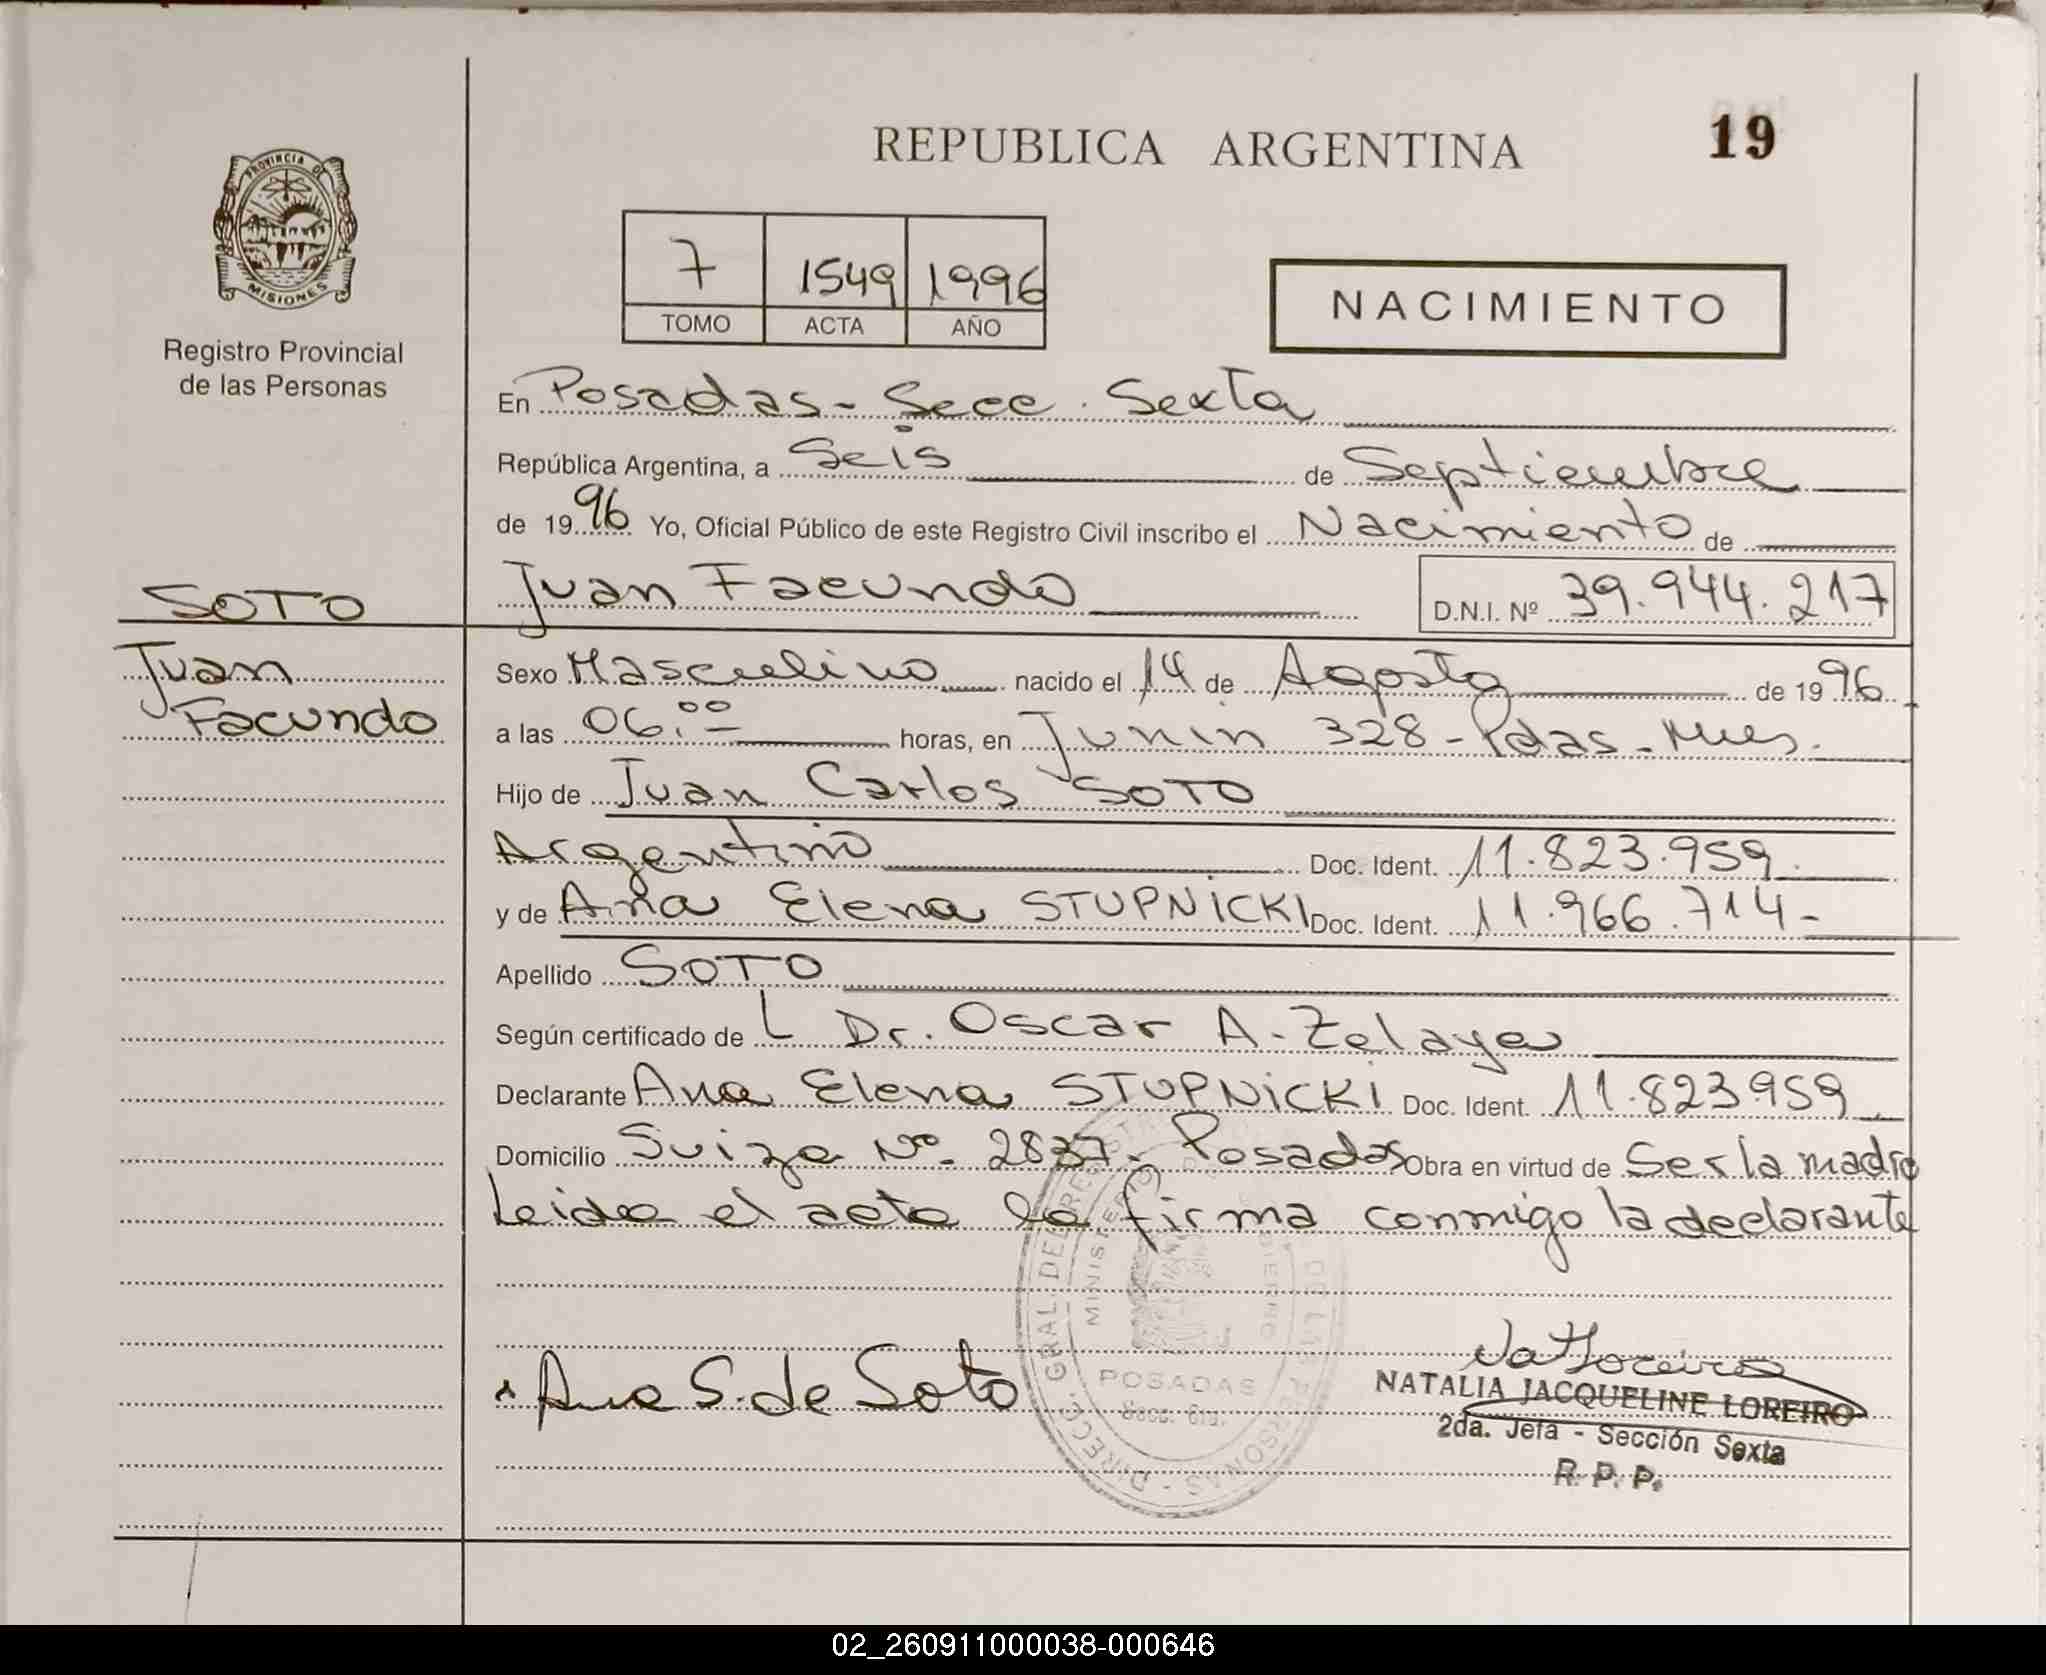 REPUBLICA ARGENTINA
19
PROVINCIA DE
MISIONES
Registro Provincial
de las Personas
7 1549 1996
TOMO ACTA AÑO
NACIMIENTO
En Posadas - Secc. Sexta
República Argentina, a Seis de Septiembre
de 1996 Yo, Oficial Público de este Registro Civil inscribo el Nacimiento de
SOTO
Juan Facundo
D.N.I. Nº 39.944.217
Juan
Facundo
Sexo Masculino nacido el 14 de Agosto de 1996
a las 06:00 horas, en Junin 328 - Pdas - Mnes.
Hijo de Juan Carlos SOTO
Argentino Doc. Ident. 11.823.959.
y de Ana Elena STUPNICKI Doc. Ident. 11.966.714-
Apellido SOTO
Según certificado de L Dr. Oscar A. Zelaya
Declarante Ana Elena STUPNICKI Doc. Ident. 11.823959
Domicilio Suiza Nº 2837 - Posadas Obra en virtud de Ser la madre
Leida el acta la firma conmigo la declarante
Ana S. de Soto
POSADAS
Secc. 6ta.
NATALIA JACQUELINE LOREIRO
2da. Jefa - Sección Sexta
R. P. P.
02_260911000038-000646